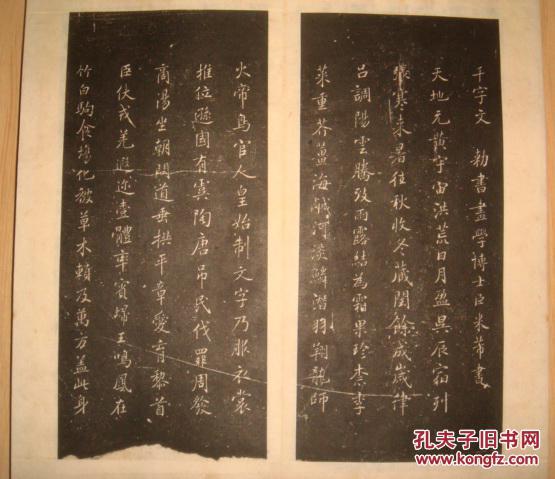 千字文 勅書畫學博士臣米芾書
天地元黃宇宙洪荒日月盈昃辰宿列
張寒来暑往秋收冬藏閏餘成歲律
呂調陽雲騰致雨露結為霜果珍柰李
菜重芥薑海鹹河淡鱗潛羽翔龍師
火帝鳥官人皇始制文字乃服衣裳
推位遜國有虞陶唐吊民伐罪周發
商湯坐朝問道垂拱平章愛育黎首
臣伏戎羌遐迩壹體率賓歸王鳴鳳在
竹白駒食場化被草木賴及萬方盖此身
孔夫子旧书网